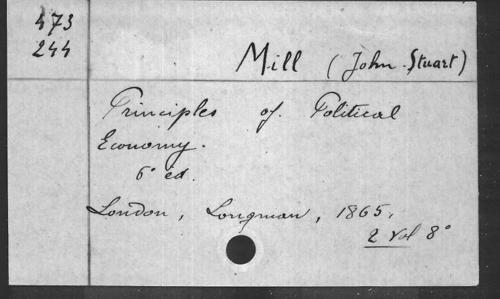 473
244
Mill (John Stuart)
Principles of Political
Economy.
6° éd.
London, Longman, 1865,
2 Vol 8°